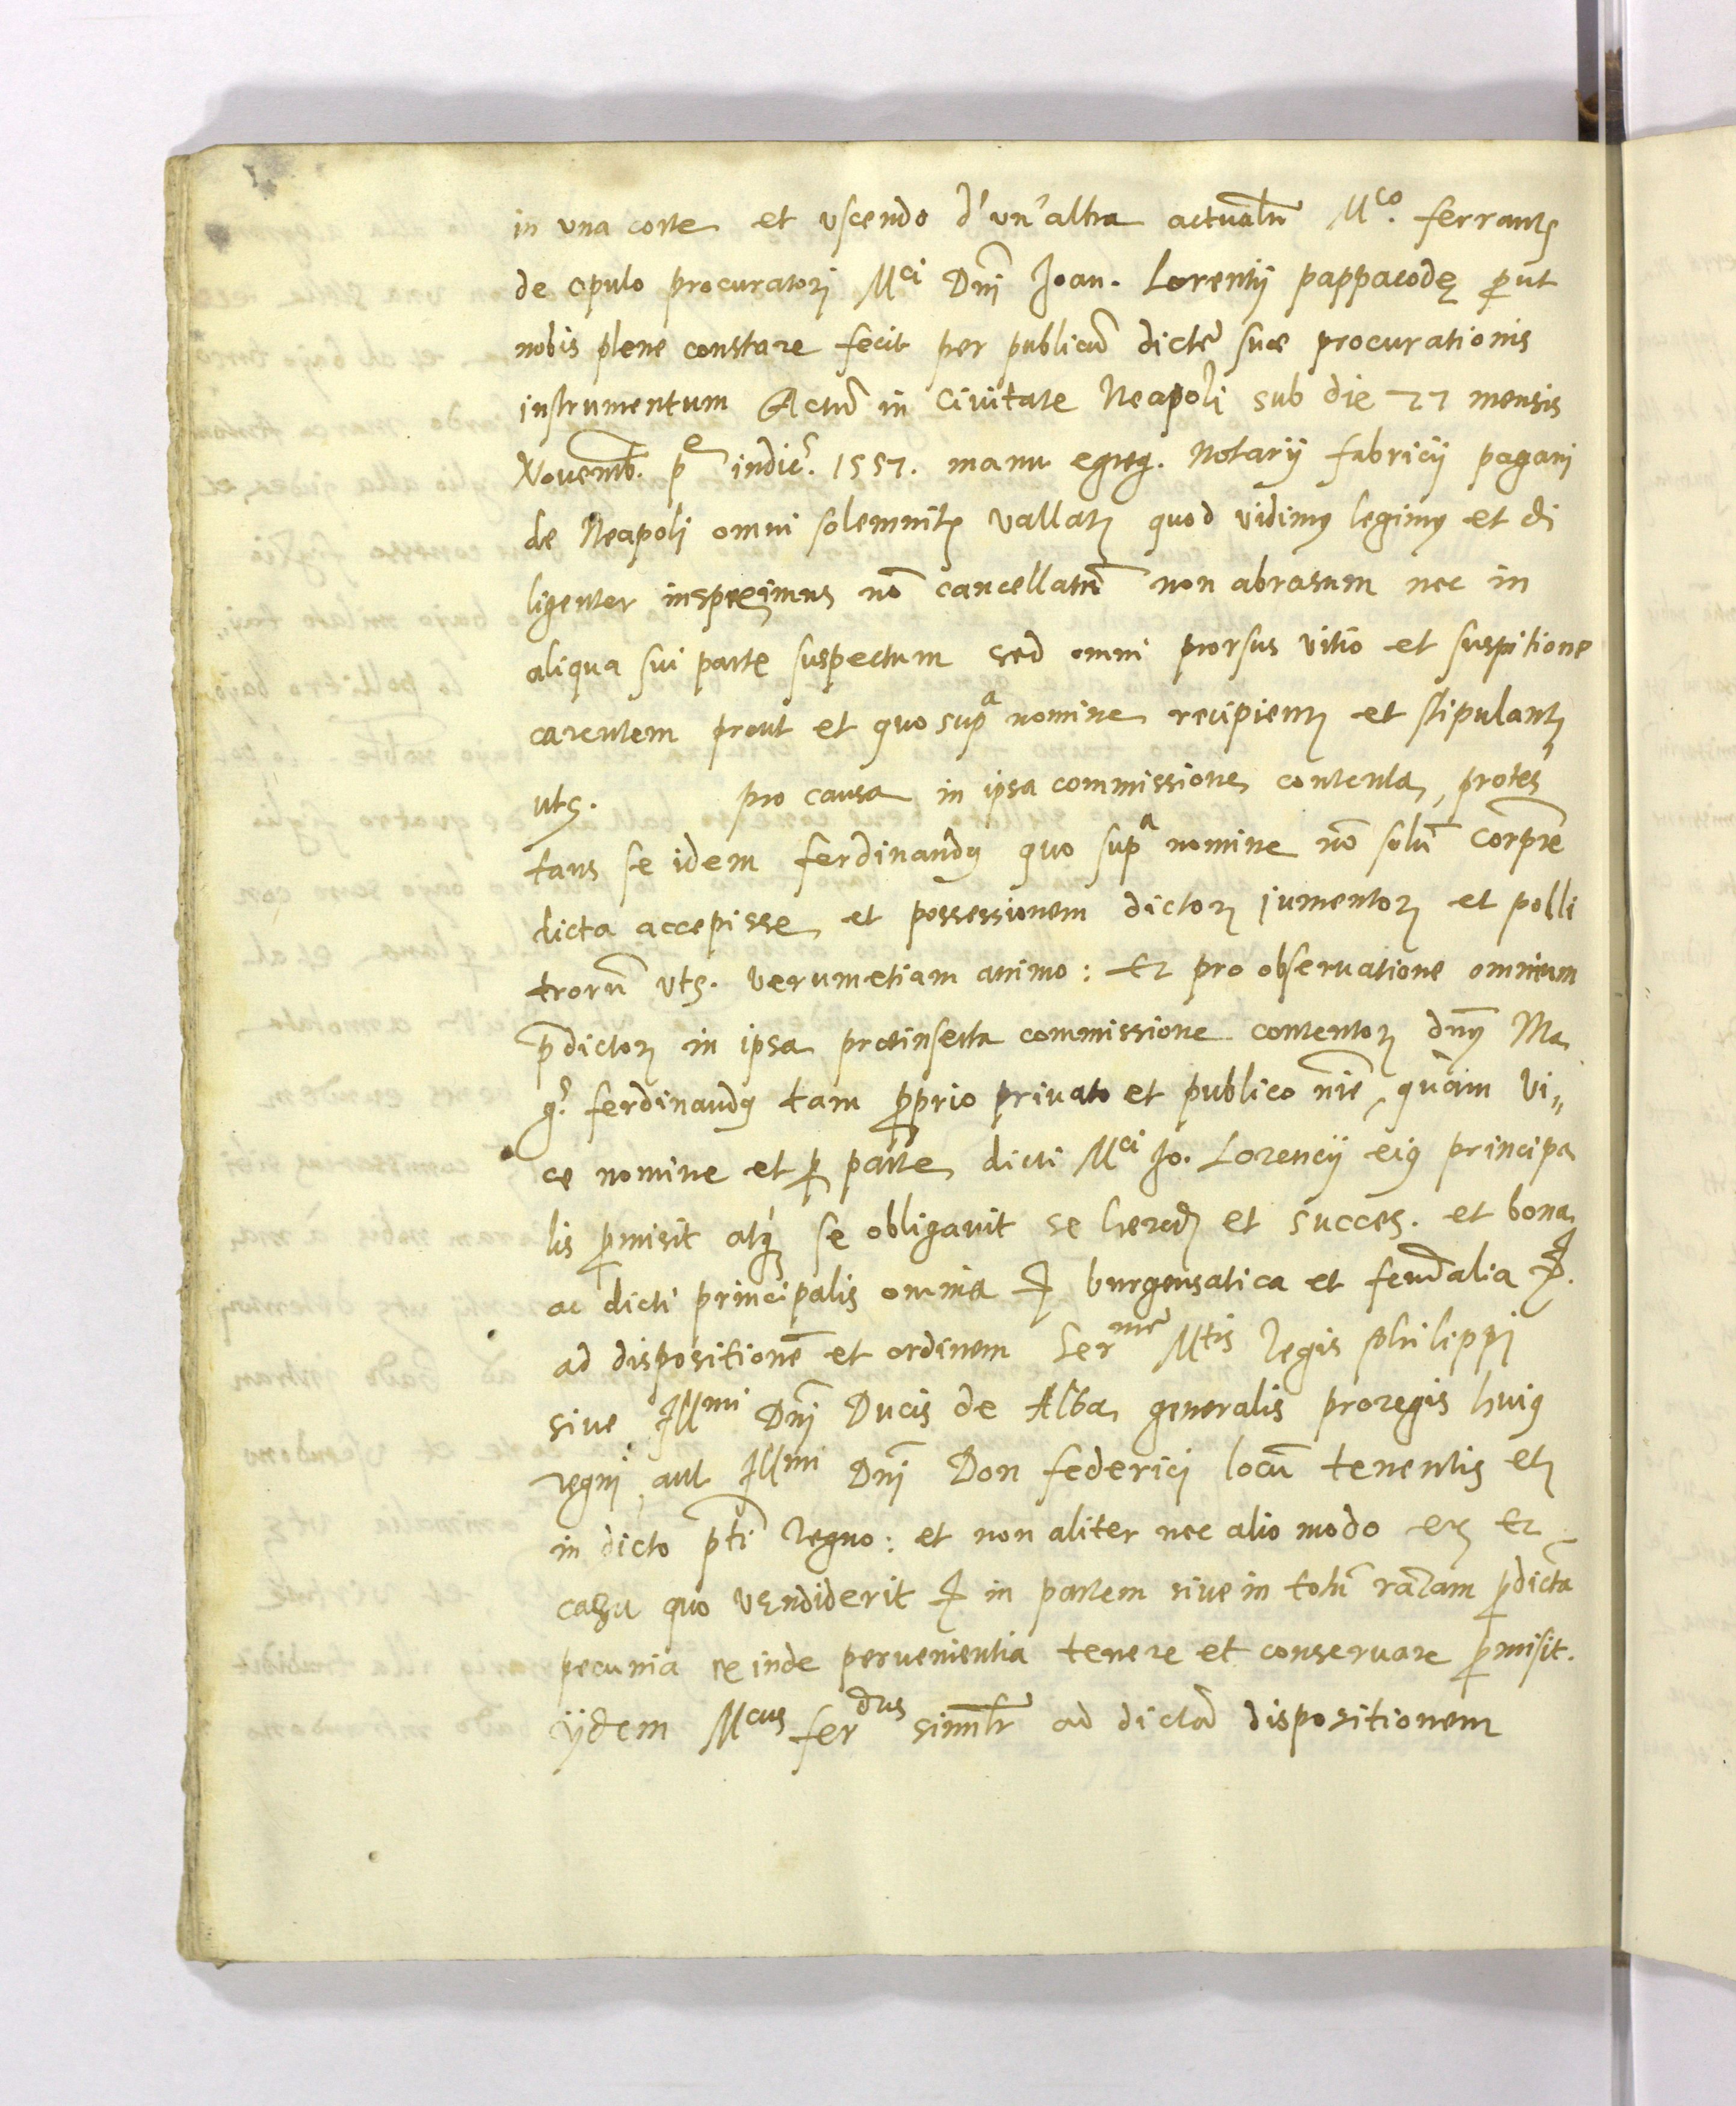 in una corte et uscendo d'un'altra actualr̄ M.co ferrantȝ
de opulo procuratorj M.ci Dnj̄ Joan. Lorentij pappacodę p̄ut
nobis plene constare fecit per publicū dictę suæ procurationis
instrumentum Actū in Ciuitate Neapolj sub die 27 mensis
Nouemb. p.e indic̄. 1557. manu egreg. Notarij fabricij pagani
de Neapoli omni solemnitȝ vallatȝ quod vidimꝰ legimꝰ et di
ligenter inspeximus nō cancellatū non abrasum nec in
aliqua sui parte suspectum sed omni prorsus vitio et suspitione
carentem prout et quo sup.a nomine recipientȝ et stipulantȝ
uts. pro causa in ipsa commissione contenta, protes
tans se idem ferdinandꝰ quo sup.a nomine nō solū corpre
dicta accepisse et possessionem dictorȝ jumentorȝ et polli
trorū uts. verumetiam animo: Et pro obseruatione omnium
p̄dictorȝ in ipsa preinserta commissione contentorȝ dn̄ꝰ Ma
g.s ferdinandꝰ tam p̄prio priuato et publico nīe, quàm vi„
ce nomine et ꝓ parte dicti M.ci Jo. Lorencij eiꝰ principa
lis p̄misit atq; se obligauit se heredȝ et succes. et bona
ac dicti principalis omnia & burgensatica et feudalia &.
ad dispositionē et ordinem Ser.me M.tis Regis philippi
siue Ill.mi Dnj̄ Ducis de Alba generalis proregis huiꝰ
regni, aut Ill.mi Dnj̄ Don federici locū tenentis etȝ
in dicto p̄ti Regno: et non aliter nec alio modo etȝ Et
casu quo vendiderit & in partem siue in totū ratam p̄dictā
pecunia exinde peruenientia tenere et conseruare p̄misit.
ijdem M.cus fer.dus simr̄ ad dictā dispositionem